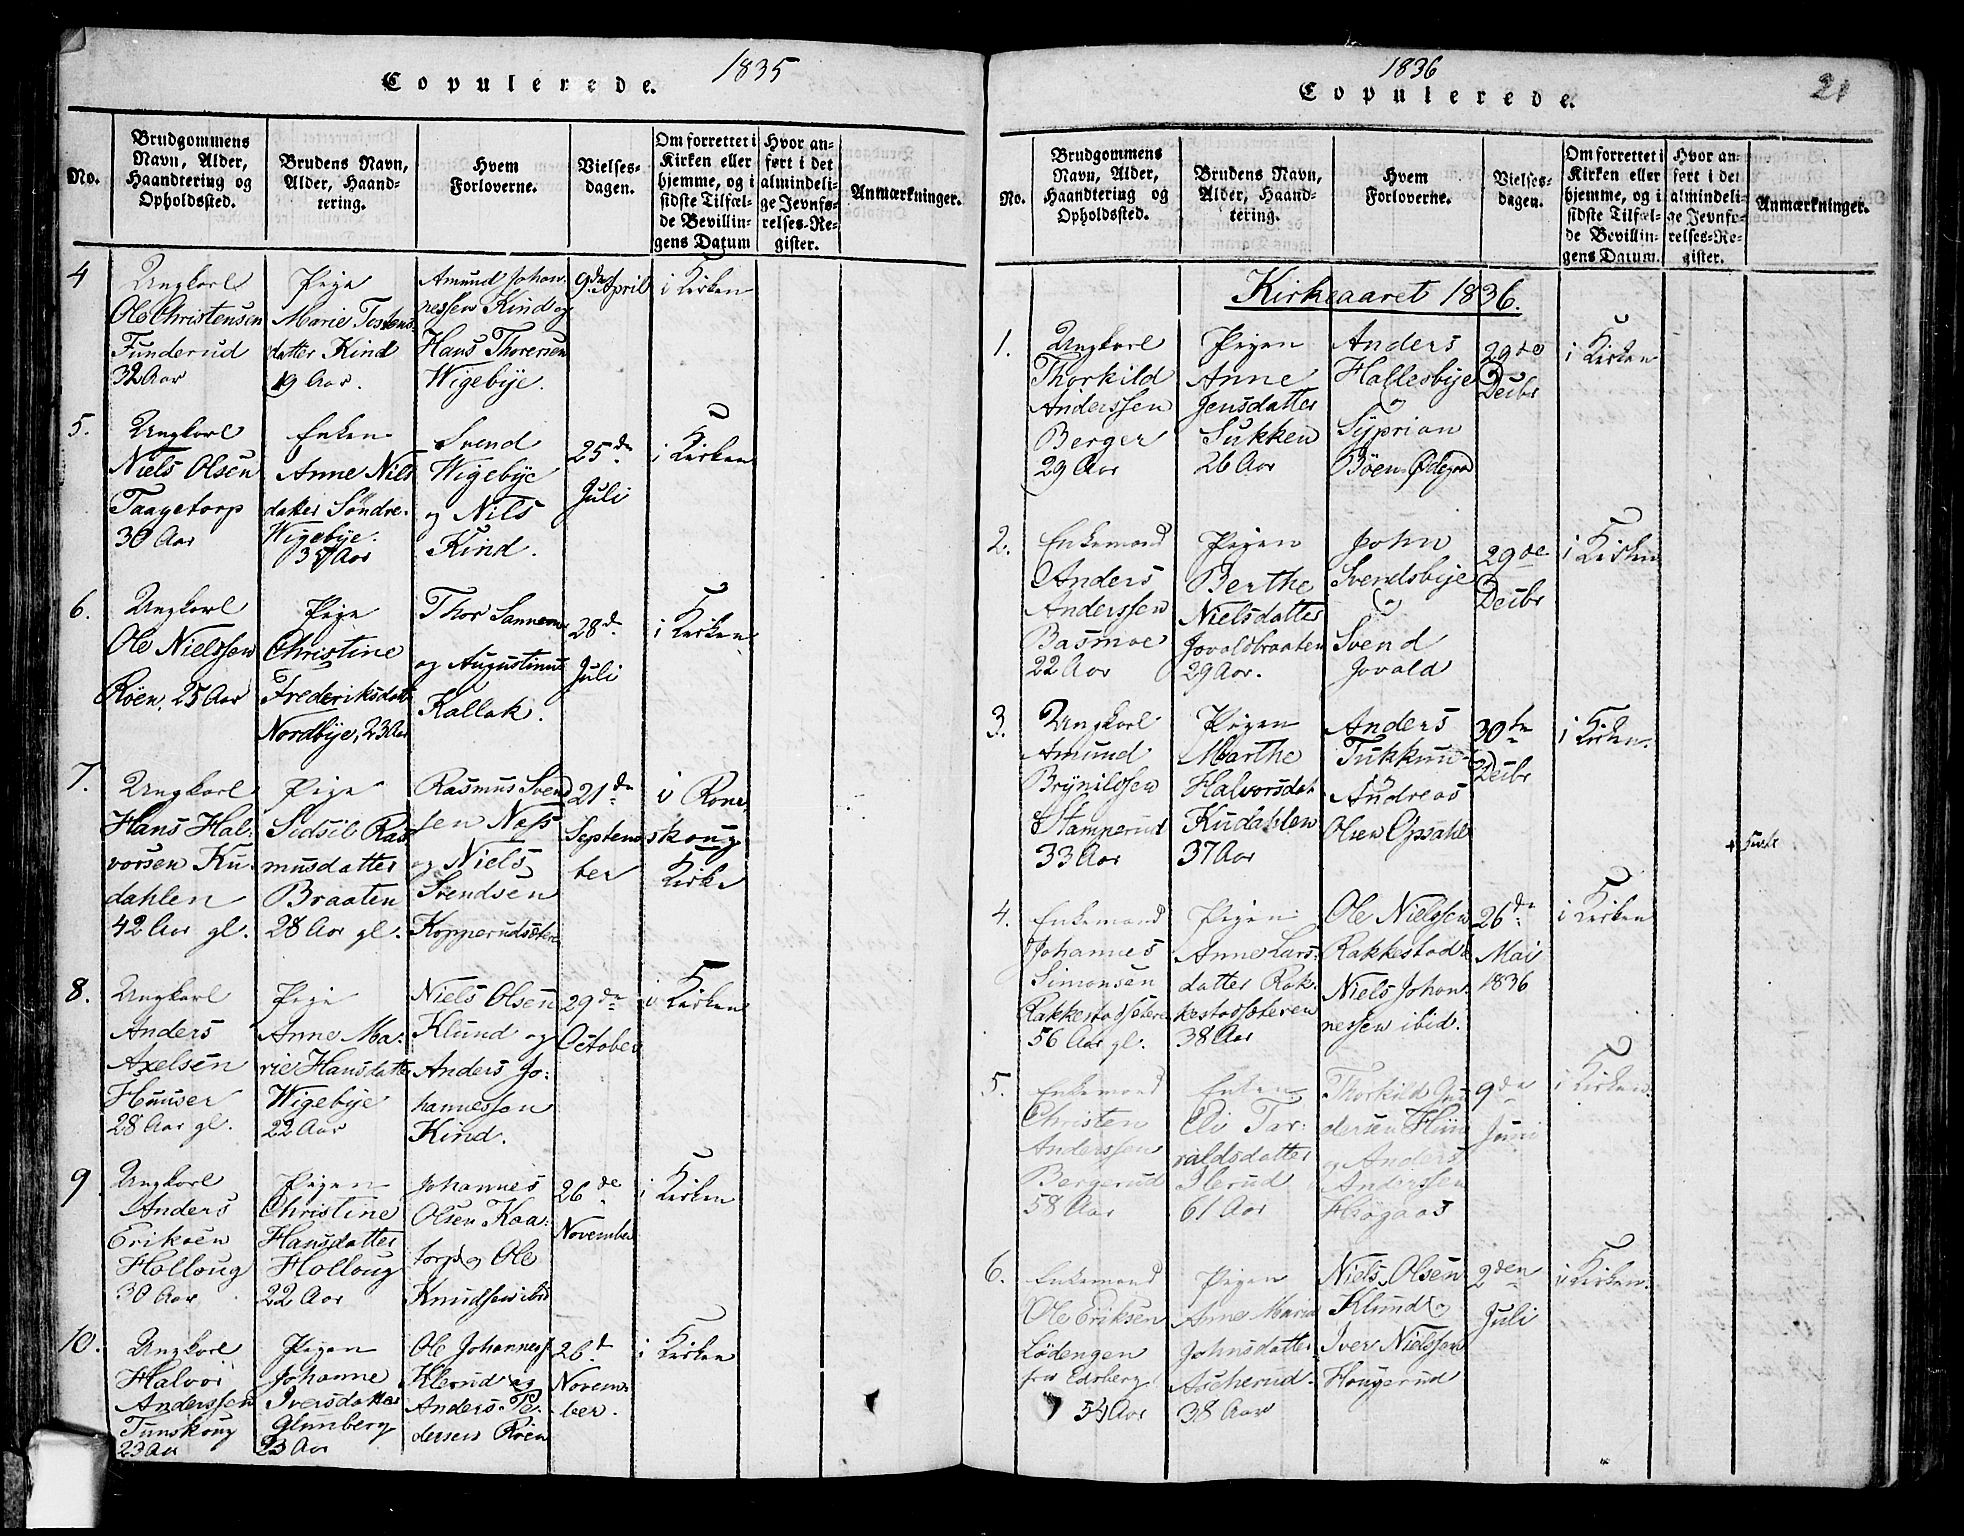 1835
Copulerede.
No.
Brudgommens
Navn, Alder,
Haandtering og
Opholdssted.
Brudens Navn,
Alder, Haand-
tering.
Hvem
Forloverne.
Vielses-
dagen.
Om forrettet i
Kirken eller
hjemme, og i
sidste Tilfæl-
de Bevillin-
gens Datum
Hvor an-
ført i det
almindeli-
ge Jevnfø-
relses-Re-
gister.
Anmærkninger.
4
Ungkarl
Ole Christensen
Funderud
32 Aar
Pige
Marie Tostens
datter Kind
19 Aar.
Amund Johan
nessen Kind og
Hans Thoresen
Wigebye.
9de April
i Kirken
5.
Ungkarl
Niels Olsen
Taagetorp
30 Aar
Enken
Anne Nils
datter Søndre
Wigebye.
35 Aar
Svend
Wigebye
og Nils
Kind.
25de
Juli
i Kirken
6.
Ungkarl
Ole Nielssen
Røen. 25 Aar
Pige
Christine
Frederiksdatt
Nordbye, 23 Aar
Thor Sannem
og Augustinus
Kallak.
28d.
Juli
i Kirken
7.
Ungkarl
Hans Hal-
vorsen Ku-
dahlen
42 Aar gl.
Pige
Sidsil Ras
musdatter
Braaten
28 Aar gl.
Rasmus Svend
sen Næss
og Niels
Svendsen
Kopperudsætere
21de
Septem
ber
i Røne
skoug
Kirke
8.
Ungkarl
Anders
Axelsen
Huuser
28 Aar gl.
Pige
Anne Ma-
rie Hansdatter
Wigebye
22 Aar
Niels Olsen
Klund og
Anders Jo-
hannessen
Kind.
29de
October
i Kirken
9.
Ungkarl
Anders
Eriksen
Halloug
30 Aar
Pigen
Christine
Hansdatter
Halloug
22 Aar
Johannes
Olsen Kaa-
torp og Ole
Knudsen ibid
26de
November
i Kirken
10.
Ungkarl
Halvor
Anderssen
Tunskoug
23 Aar
Pigen
Johanne
Iversdatter
Glumberg
23 Aar
Ole Johanness
Klerud og
Anders Pe-
dersen Røen
26d
Novem-
ber.
i Kirken
1836
Copulerede.
21
No.
Brudgommens
Navn, Alder,
Haandtering og
Opholdssted.
Brudens Navn,
Alder, Haand-
tering.
Hvem
Forloverne.
Vielses-
dagen.
Om forrettet i
Kirken eller
hjemme, og i
sidste Tilfæl-
de Bevillin-
gens Datum.
Hvor an-
ført i det
almindeli-
ge Jevnfø-
relses-Re-
gister.
Anmærkninger.
Kirkeaaret 1836.
1.
Ungkarl
Thorkild
Anderssen
Berger
29 Aar
Pigen
Anne
Jensdatter
Sukken
26 Aar
Anders
Hallesbye
og
Syprian
Bøen Ødegaard
29de
Decbr
i Kirken
2.
Enkemand
Anders
Anderssen
Basmoe
22 Aar
Pigen
Berthe
Nielsdatter
Jovaldbraaten
29 Aar.
John
Svendsbye
og
Svend
Jovald
29de
Decbr
i Kirken
3.
Ungkarl
Amund
Brynilssen
Stamperud
33 Aar
Pigen
Marthe
Halvorsdat
Kudahlen
37 Aar
Anders
Tukkun
Andreas
Olsen Opsahl
30te
Decbr
i Kirken.
4.
Enkemand
Johannes
Simonsen
Rakkestadsætere
56 Aar gl.
Pigen
Anne Lars-
datter Rak-
kestadsæteren
38 Aar
Ole Nielssen
Rakkestad &
Niels Johan-
nessen ibid.
26de
Mai
1836
i Kirken
5.
Enkemand
Christen
Anderssen
Bergerud
58 Aar
Enken
Eli Tar-
raldsdatter
Ilerud
61 Aar
Thorkild Gun
dersen
og Anders
Anderssen
Høgaas
9de
Juni
i Kirken.
6.
Enkemand
Ole Eriksen
Lødengen
fra Edsberg
54 Aar
Pigen
Anne Maria
Johnsdatter
Ascherud.
38 Aar
Niels Olsen
Klund og
Iver Nielssen
Hougerud
2den
Juli
i Kirken.